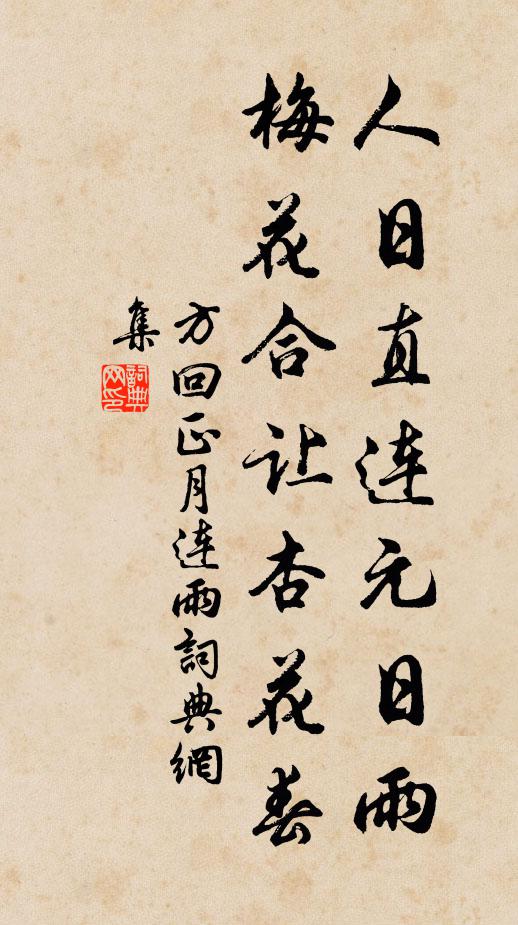 人日直连元日雨
梅花合让杏花春
方回正月连雨詞典網
集
詞典
网印